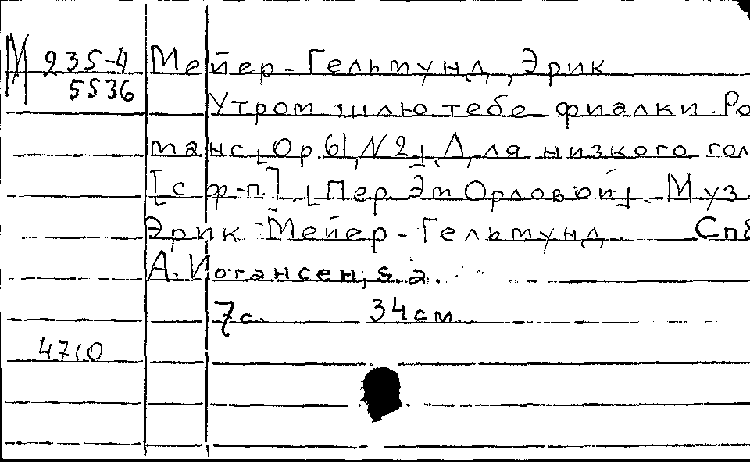 М 235-4 Мейер-Гельмунд, Эрик
5536
Утром шлю тебе фиалки. Ро
манс, Op. 61, N2, Для низкого гол
[с ф-п] Пер Эм Орловой. Муз
Эрик Мейер-Гельмунд. Спб
А. Иогансен, s. a.
7 с. 34 см
4710